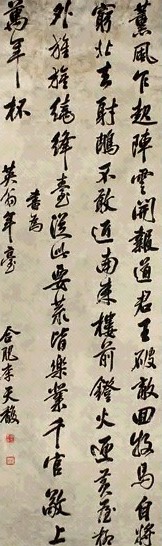 薰風乍起陣雲開報道君王破敵回牧馬自將
窮北去射鵰不敢近南來樓前鐙火迎黃蓋柳
外旌旗繞絳臺從此要荒皆樂業千官敬上
萬年杯
書為
英翁年臺
合肥李天馥